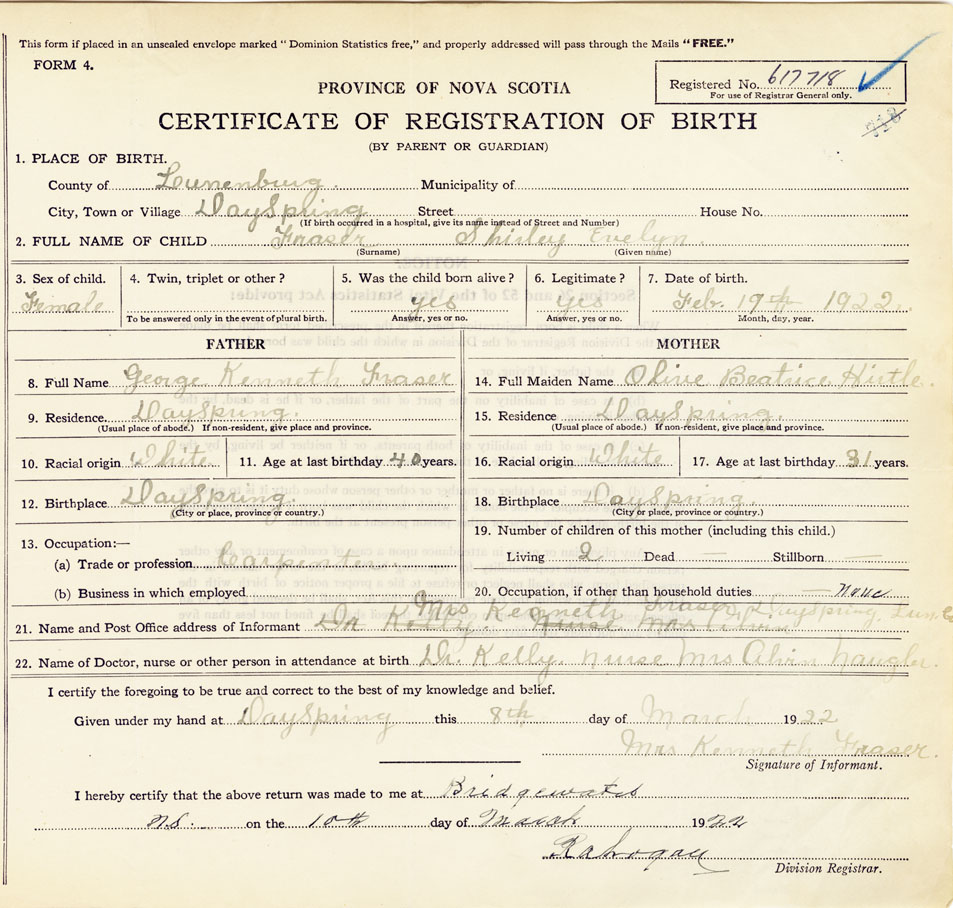 This form if placed in an unsealed envelope marked "Dominion Statistics free," and properly addressed will pass through the Mails "FREE."
FORM 4.
Registered No. 617718
For use of Registrar General only.
PROVINCE OF NOVA SCOTIA
CERTIFICATE OF REGISTRATION OF BIRTH
(BY PARENT OR GUARDIAN)
1. PLACE OF BIRTH.
County of Lunenburg. Municipality of
City, Town or Village DaySpring Street House No.
(If birth occurred in a hospital, give its name instead of Street and Number)
2. FULL NAME OF CHILD Fraser Shirley Evelyn.
(Surname) (Given name)
3. Sex of child. 4. Twin, triplet or other? 5. Was the child born alive? 6. Legitimate? 7. Date of birth.
Female yes yes Feb. 19th 1922.
To be answered only in the event of plural birth. Answer, yes or no. Answer, yes or no. Month, day, year.
FATHER MOTHER
8. Full Name George Kenneth Fraser 14. Full Maiden Name Olive Beatrice Hirtle.
9. Residence DaySpring. 15. Residence DaySpring.
(Usual place of abode.) If non-resident, give place and province. (Usual place of abode.) If non-resident, give place and province.
10. Racial origin White 11. Age at last birthday 40 years. 16. Racial origin White 17. Age at last birthday 31 years.
12. Birthplace DaySpring. 18. Birthplace DaySpring.
(City or place, province or country.) (City or place, province or country.)
13. Occupation:— 19. Number of children of this mother (including this child.)
(a) Trade or profession Carpenter Living 2 Dead — Stillborn —
(b) Business in which employed 20. Occupation, if other than household duties None
Mrs Kenneth Fraser, DaySpring, Lun. Co
21. Name and Post Office address of Informant Dr Kelly. Nurse Mrs Alvin
22. Name of Doctor, nurse or other person in attendance at birth Dr. Kelly. Nurse Mrs Alvin Naugler.
I certify the foregoing to be true and correct to the best of my knowledge and belief.
Given under my hand at DaySpring this 8th day of March 1922
Mrs Kenneth Fraser.
Signature of Informant.
I hereby certify that the above return was made to me at Bridgewater
N.S. on the 10th day of March 1922
Division Registrar.